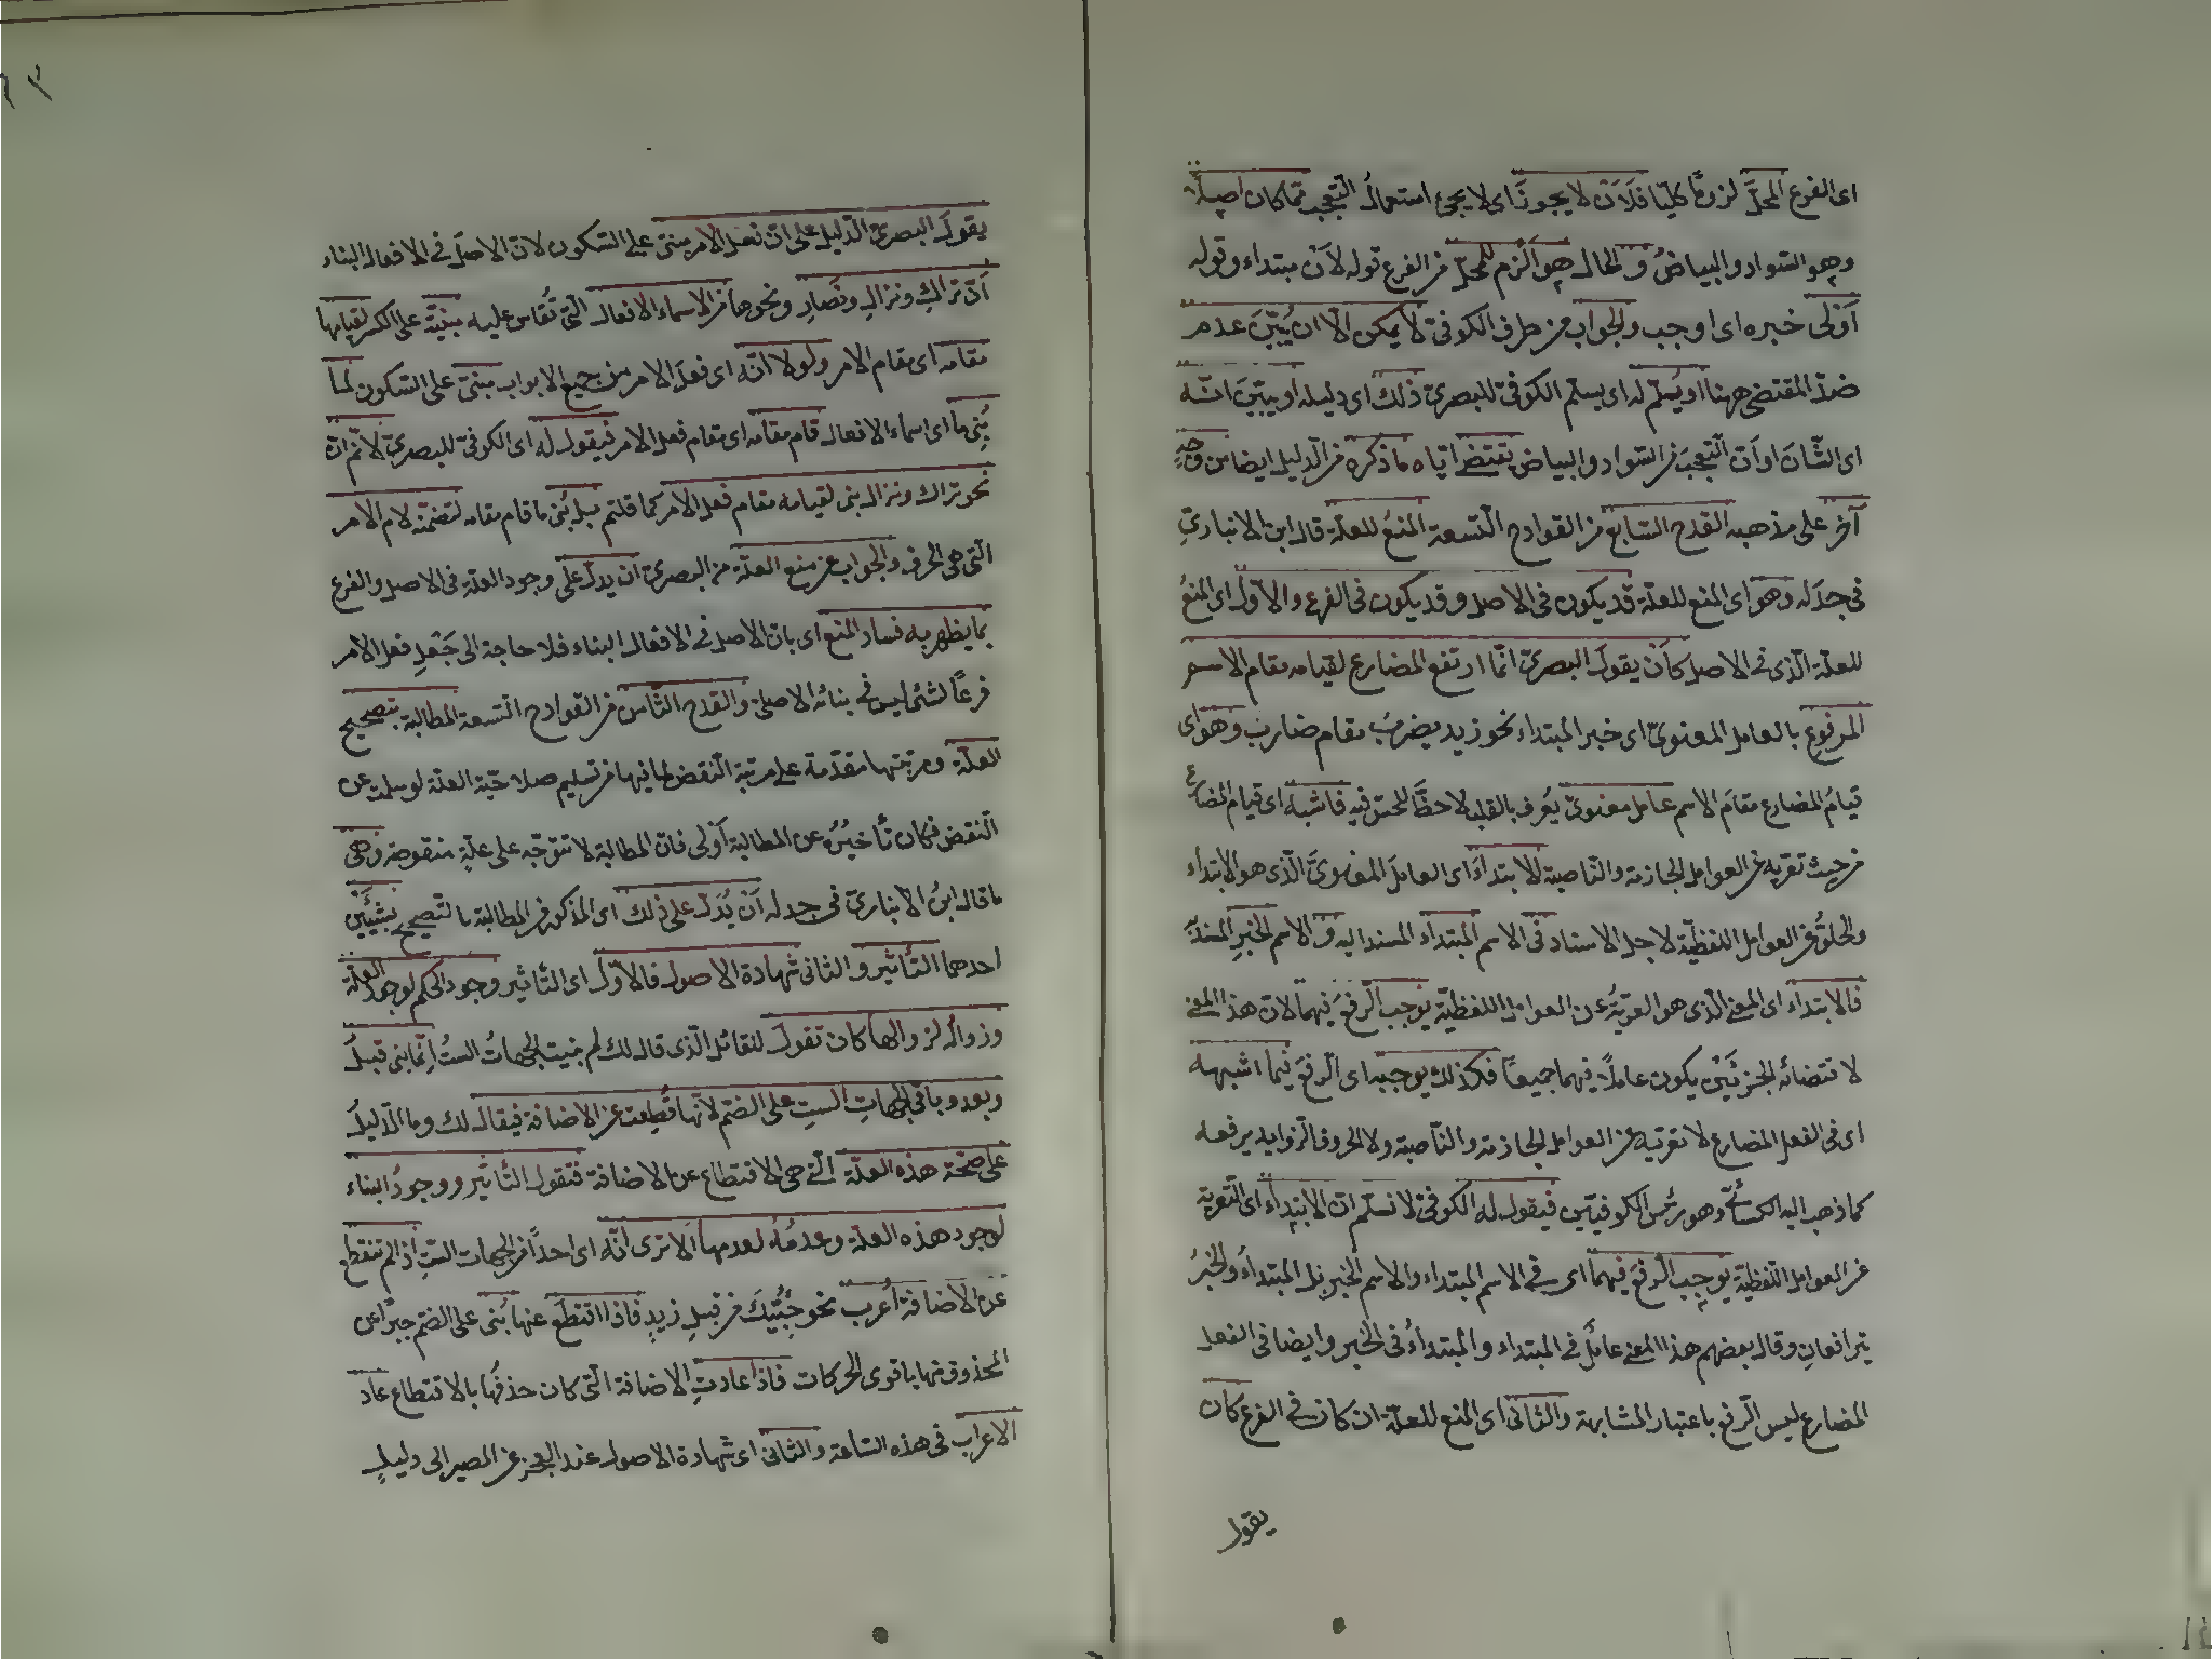 اى الفرع المحلَّ لزومًا كليّا فلَاَنْ لا يجوزَ اى لا يجئ استعمالُ التعجب مما كان اصلًا
وهو السواد والبياضُ والحال هو الزم للمحلّ من الفرع قوله لاَن مبتداء وقوله
اَوْلى خبره اى اوجب والجواب من طرف الكوفىّ لا يمكن الّا ان يُبيّنَ عدم
ضدّ المقتضى ههنا او يُسلّم له اى يسلّم الكوفىّ للبصرىّ ذلك اى دليله او يبيّنَ انّه
اى الشّانَ او اَن التعجبَ من السواد والبياض يقتضى اياه ما ذكره من الدليل ايضا من وجهٍ
آخر على مذهبه القدح السّابع من القوادح التّسعة المنعُ للعلّة قال ابن الانبارىّ
فى جدَله وهو اى المنع للعلّة قد يكون فى الاصل وقد يكون فى الفرع والاوّل اى المنعُ
للعلّة الّذى فى الاصل كاَنْ يقولَ البصرىّ انّما ارتفع المضارع لقيامه مقام الاسم
المرفوع بالعامل المعنوىّ اى خبر المبتداء نحو زيد يضربُ مقام ضارب وهو اى
قيامُ المضارع مقامَ الاسم عامل معنوىّ يُعرف بالقلب لا حظَّ للحسّ فيه فاشبه اى قيام المضارع
من حيث تعرّيه عن العوامل الجازمة والنّاصبة للابتداءَ اى العاملَ المعنوىَّ الّذى هو الابتداء
والخلوُّ من العوامل اللفظيّة لاجل الاسناد فى الاسم المبتداء المسند اليه والاسم الخبرِ المسندِ
فالابتداء اى المعنى الّذى هو التعريةُ عن العوامل اللفظيّة يوجب الرفعَ فيهما لانّ هذا المعنى
لاقتضائه الجزئَيْن يكون عاملًا فيهما جميعًا فكذلك يوجبه اى الرفعَ فيما اشبهه
اى فى الفعل المضارع لا تعرّيه عن العوامل الجازمة والنّاصبة ولا الحروف الزّوايد يرفعه
كما ذهب اليه الكسائىّ وهو رئيس الكوفيّين فيقول له الكوفىّ لا نسلّم ان الابتداء اى التّعرية
عن العوامل اللفظيّة يوجب الرفعَ فيهما اى فى الاسم المبتداء والاسم الخبر بل المبتداءُ والخبرُ
يترافعانِ وقال بعضهم هذا المعنى عاملٌ فى المبتداء والمبتداءُ فى الخبر وايضا فى الفعل
المضارع ليس الرفع باعتبار المشابهة والثّانى اى المنع للعلّة ان كان فى الفرع كان
يقول
يقولَ البصرىّ الدّليل على انّ فعل الامر مبنىّ على السّكون لانّ الاصلَ فى الافعال البناء
اَنّ تراكِ ونزالِ ونَصَارِ ونحوها من الاسماء الافعال الّتى تُقاس عليه مبنيّة على الكسر لقيامها
مقامه اى مقام الامر ولولا انّه اى فعلَ الامر من جميع الابواب مبنىّ على السّكون لما
بُنِى ما اى اسماء الافعال قام مقامه اى مقام فعل الامر فيقول له اى الكوفىّ للبصرىّ لا نَم انّ
نحو تراك ونزال بنى لقيامه مقام فعل الامر كما قلتم بل بُنى ما قام مقامه لتضمّنه لام الامر
الّتى هى الحرف والجواب عن منع العلّة من البصرىّ ان يدلّ على وجود العلّة فى الاصل والفرع
بما يظهر به فساد المنع اى بان الاصل فى الافعال البناء فلا حاجة الى جَعْلِ فعل الامر
فرعًا لشئ ليس فى بنائه الاصلىّ والقدح الثّامن من القوادح التسعة المطالبة بتصحيح
العلّة ومرتبتها مقدّمة على مرتبة النّقض لما فيها من تسليم صلاحيّة العلّة لو سلمت عن
النّقض فكان تأخيرُه عن المطالبة اَوْلى فانّ المطالبة لا تتوجّه على علّةٍ منقوضة وهى
ما قال ابنُ الانبارىّ فى جدله اَنْ يُدَلّ على ذلك اى المذكور من المطالبة بالتصحيح بشيئَيْن
احدهما التّأثير والثانى شهادة الاصول فالاوّل اى التّاثير وجود الحكم لوجود العلّة
وزواله لزوالها كان تقول للقائل الّذى قال لك لم بنيت الجهاتُ الستُ اِنّما بنى قبلُ
وبعد وباقى الجهاتِ الستِ على الضّم لانّها قُطِعت عن الاضافة فيقال لك وما الدّليلُ
على صحّة هذه العلّة الّتى هى الاقتطاع عن الاضافة فتقول التّأثير ووجودُ البناء
لوجود هذه العلّة وعدمُه لعدمها اَلا ترى انّه اى احدًا من الجهات الستِ اذ لم تنقطع
عن الاضافة اُعرب نحو جئتُكَ من قبلِ زيدٍ فاذا اقتطَعَ عنها بُنى على الضّم جبرًا عن
المحذوف منها باقوى الحركات فاذا عادتِ الاضافة الّتى كان حذفُها بالاقتطاع عاد
الاعراب فى هذه السّاعة والثانى اى شهادة الاصول عند العجز عن المصير الى دليلٍ